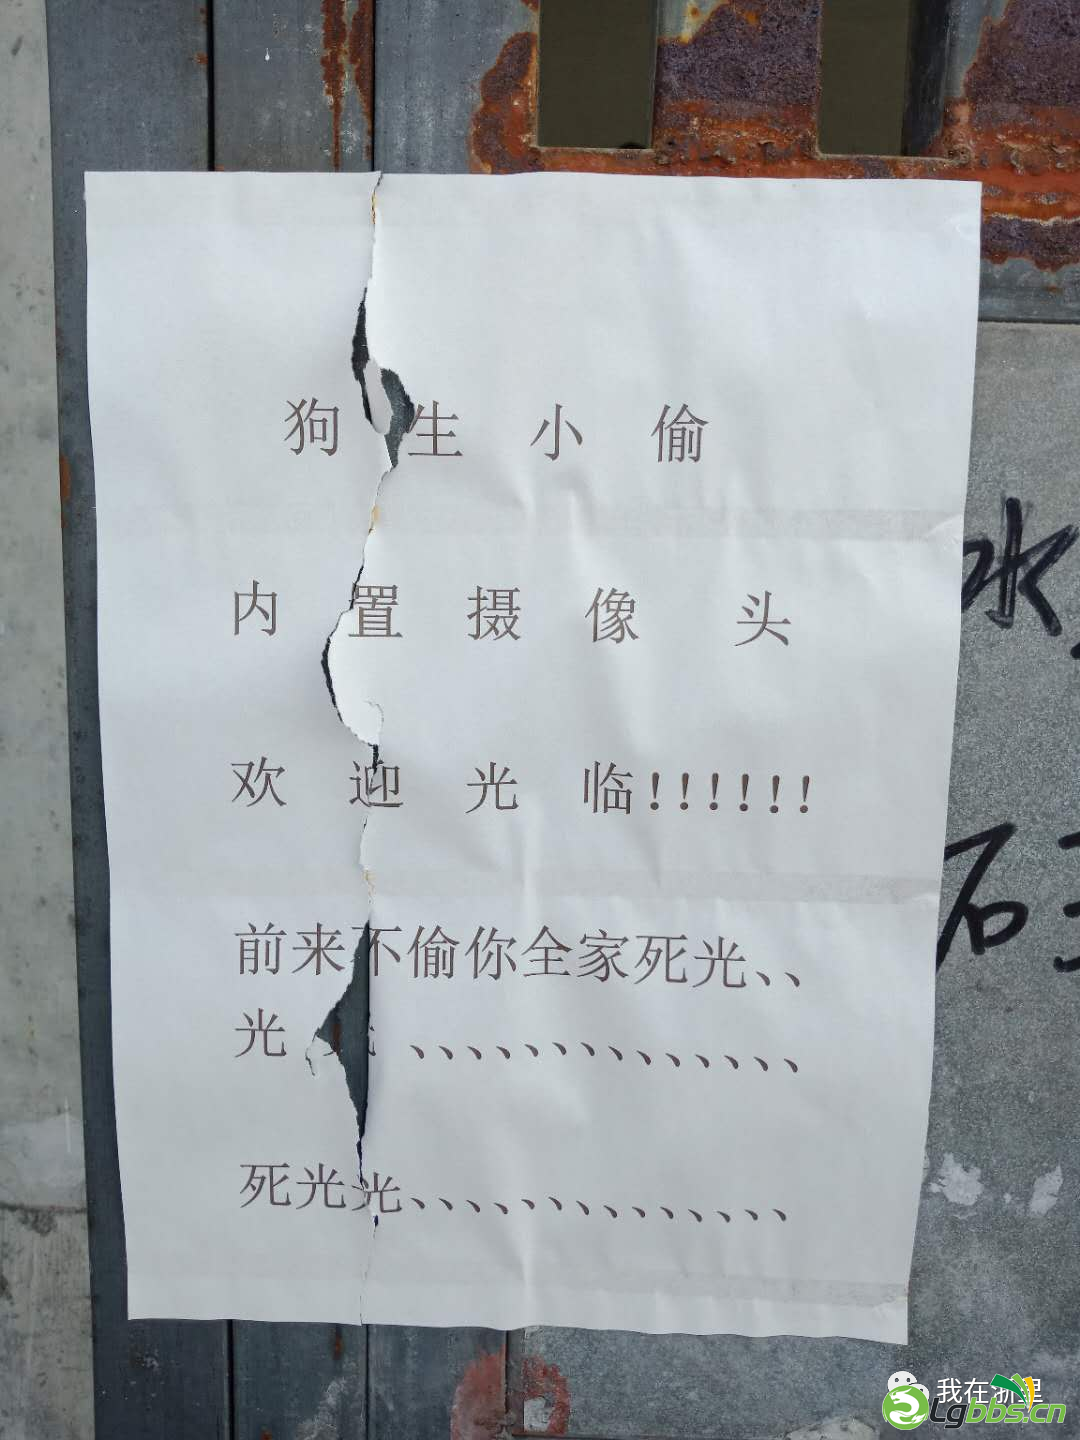 狗生小偷
内置摄像头
欢迎光临!!!!!!
前来不偷你全家死光、、
光光、、、、、、、、、、、、、、
死光光、、、、、、、、、、、、、、
水
石
我在浙里
Lgbbs.cn